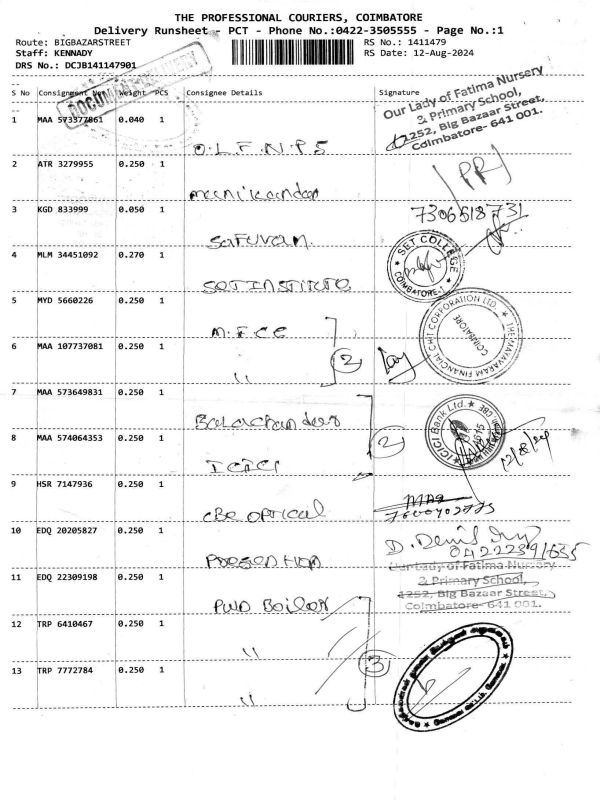 THE PROFESSIONAL COURIERS, COIMBATORE
Delivery Runsheet - PCT - Phone No.:0422-3505555 - Page No.:1
Route: BIGBAZARSTREET RS No.: 1411479
Staff: KENNADY RS Date: 12-Aug-2024
DRS No.: DCJB141147901
S No Consignment No Weight PCS Consignee Details Signature
DOCUMENT DELIVERY
Our Lady of Fatima Nursery
& Primary School,
1252, Big Bazaar Street,
Coimbatore- 641 001.
1 MAA 573377861 0.040 1 O.L.F.N.P.S
2 ATR 3279955 0.250 1 manikandan
3 KGD 833999 0.050 1 Saruvan 7306518731
4 MLM 34451092 0.270 1 SET INSTITUTE
SET COLLEGE
COIMBATORE-1
5 MYD 5660226 0.250 1 M.F.C.C
6 MAA 107737081 0.250 1 " 2
FINANCIAL CHIT CORPORATION LTD.
COIMBATORE
7 MAA 573649831 0.250 1 Balachander
8 MAA 574064353 0.250 1 ICICI 2
ICICI Bank Ltd.
12/8/24
9 HSR 7147936 0.250 1 CBE OPTICAL
10 EDQ 20205827 0.250 1
04222391635
Our Lady of Fatima Nursery
& Primary School,
1252, Big Bazaar Street,
Coimbatore- 641 001.
11 EDQ 22309198 0.250 1 PWD Boiler
12 TRP 6410467 0.250 1 " 3
13 TRP 7772784 0.250 1 "